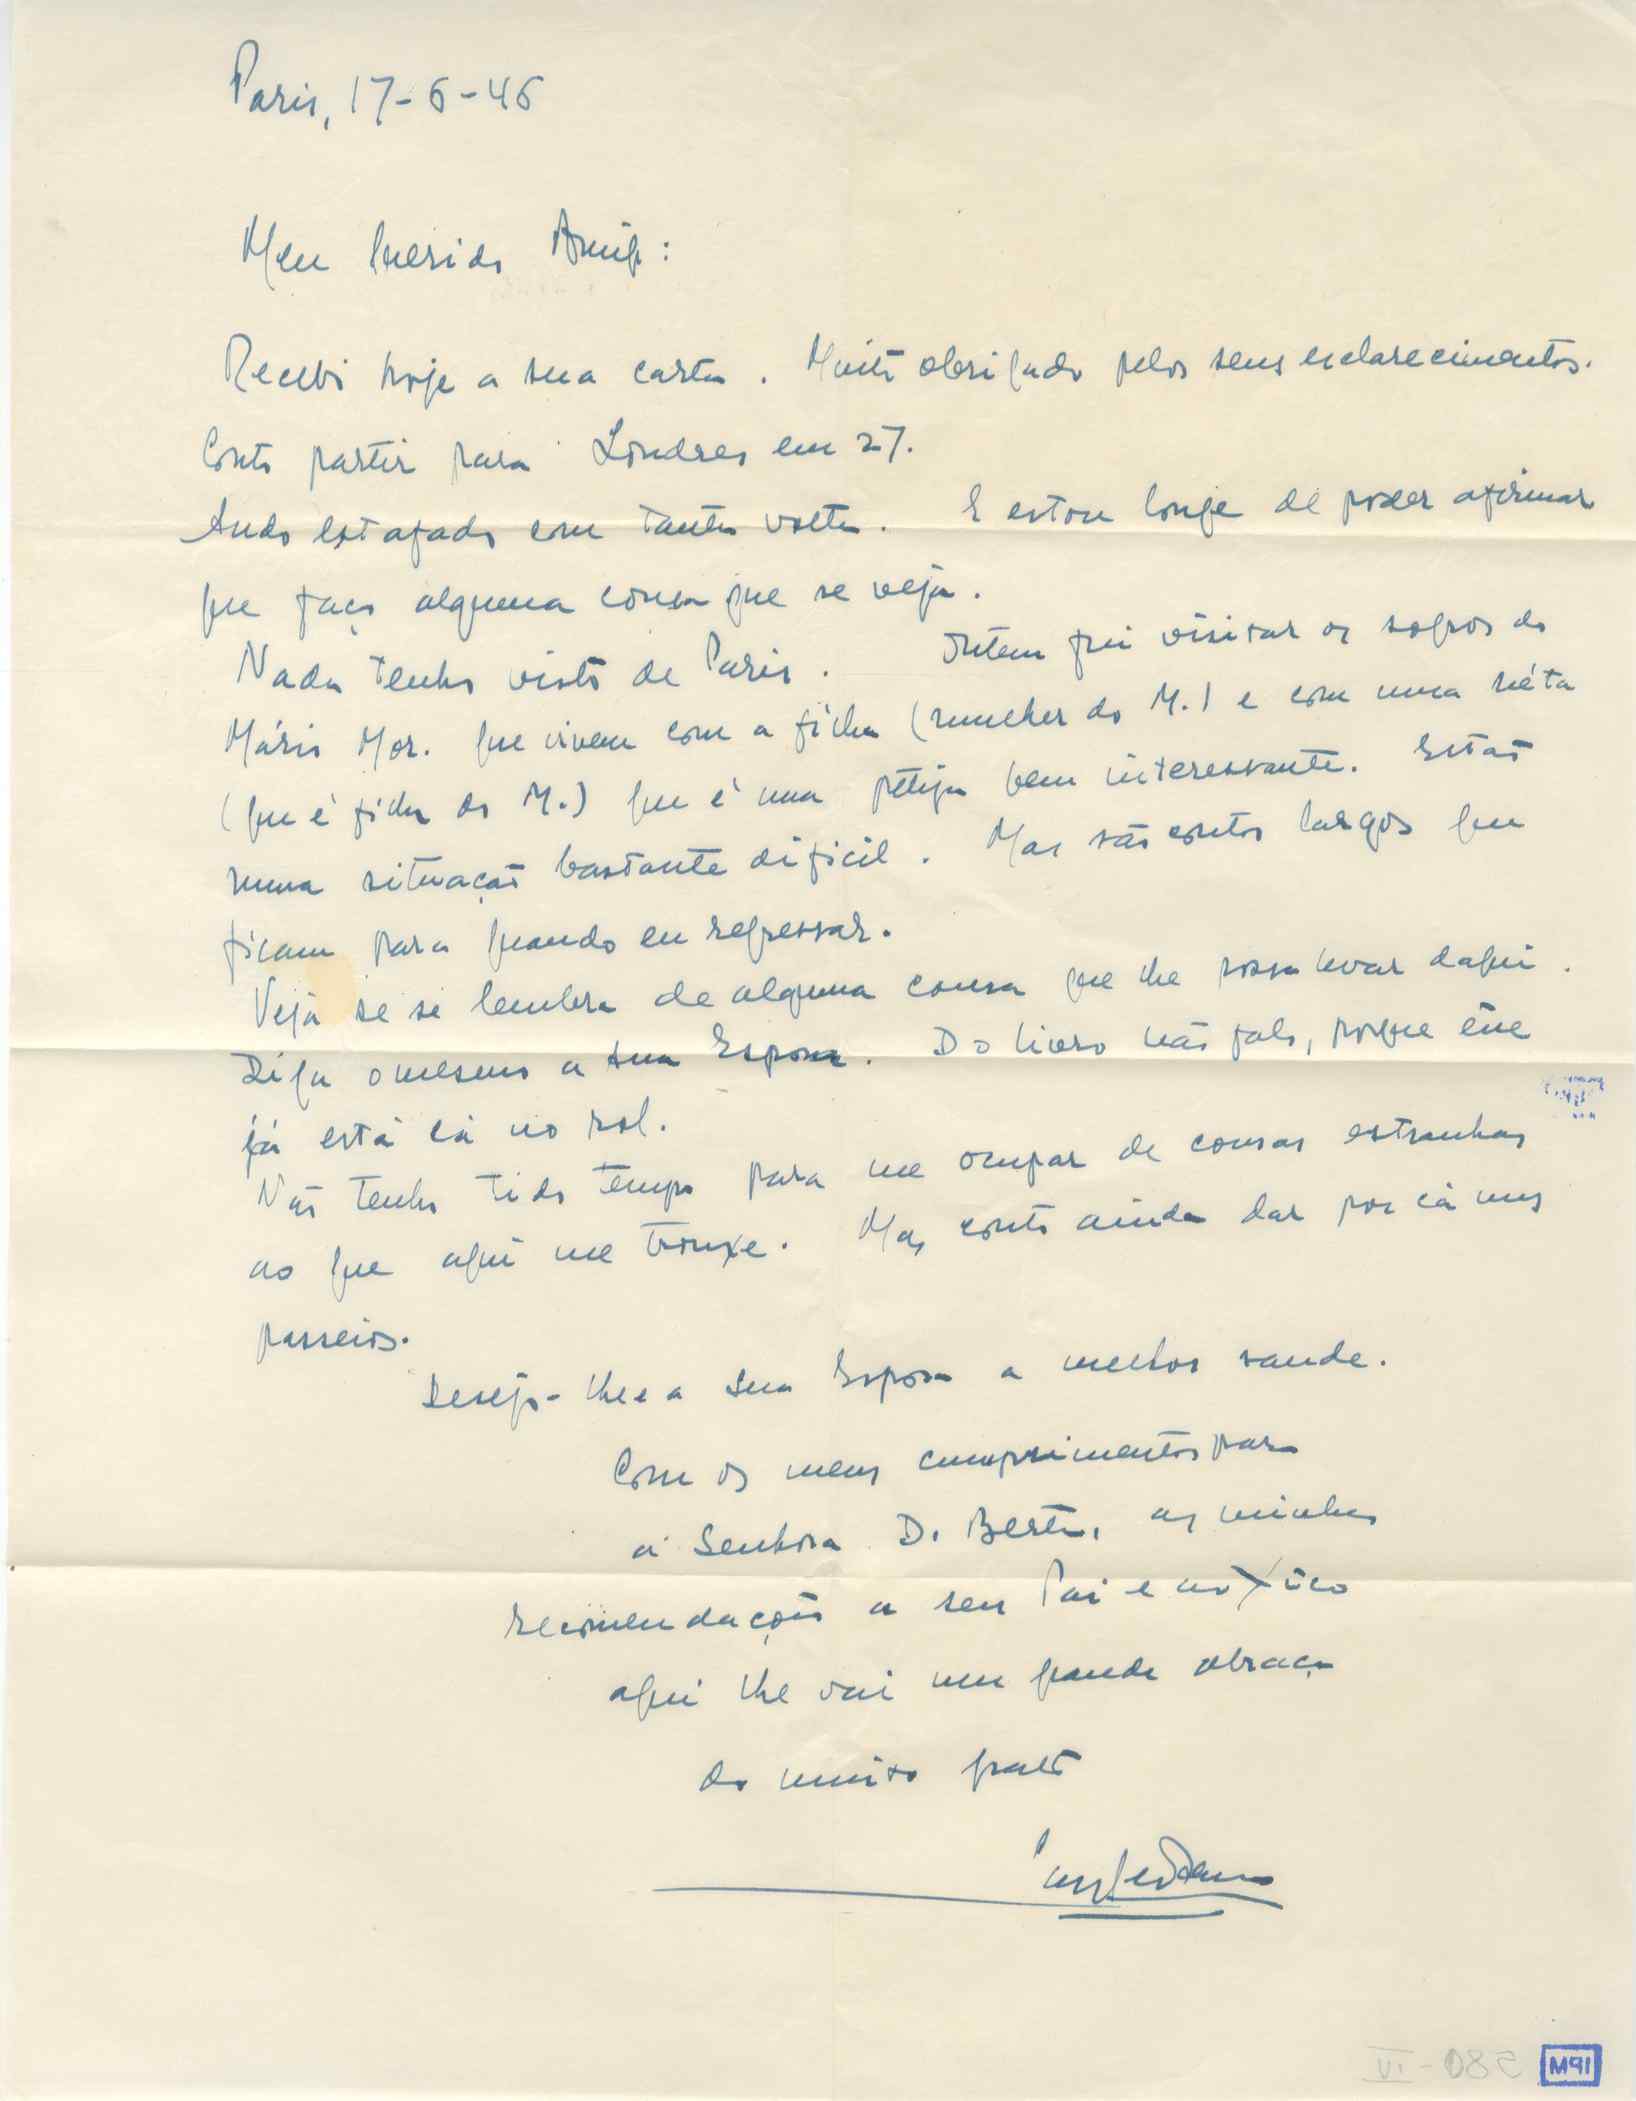 Paris, 17-6-46
Meu Querido Amigo:
Recebi hoje a sua carta. Muito obrigado pelos seus esclarecimentos.
Conto partir para Londres em 27.
Ando estafado com tanta volta. E estou longe de poder afirmar
que faço alguma cousa que se veja.
Nada tenho visto de Paris. Ontem fui visitar os sogros do
Mário Mor. que vivem com a filha (mulher do M.) e com uma néta
(que é filha do M.) que é uma petiza bem interessante. Estão
numa situação bastante dificil. Mas são contos largos que
ficam para quando eu regressar.
Veja se se lembra de alguma cousa que lhe possa levar daqui.
Diga o mesmo a sua Esposa. Do livro não falo, porque êsse
já está cá no rol.
Não tenho tido tempo para me ocupar de cousas estranhas
ao que aqui me trouxe. Mas conto ainda dar por cá uns
passeios.
Desejo-lhe e a sua Esposa a melhor saude.
Com os meus cumprimentos para
a Senhora D. Berta, as minhas
recomendações a seu Pai e ao Xico
aqui lhe vai um grande abraço
do muito grato
VI-085
IPM